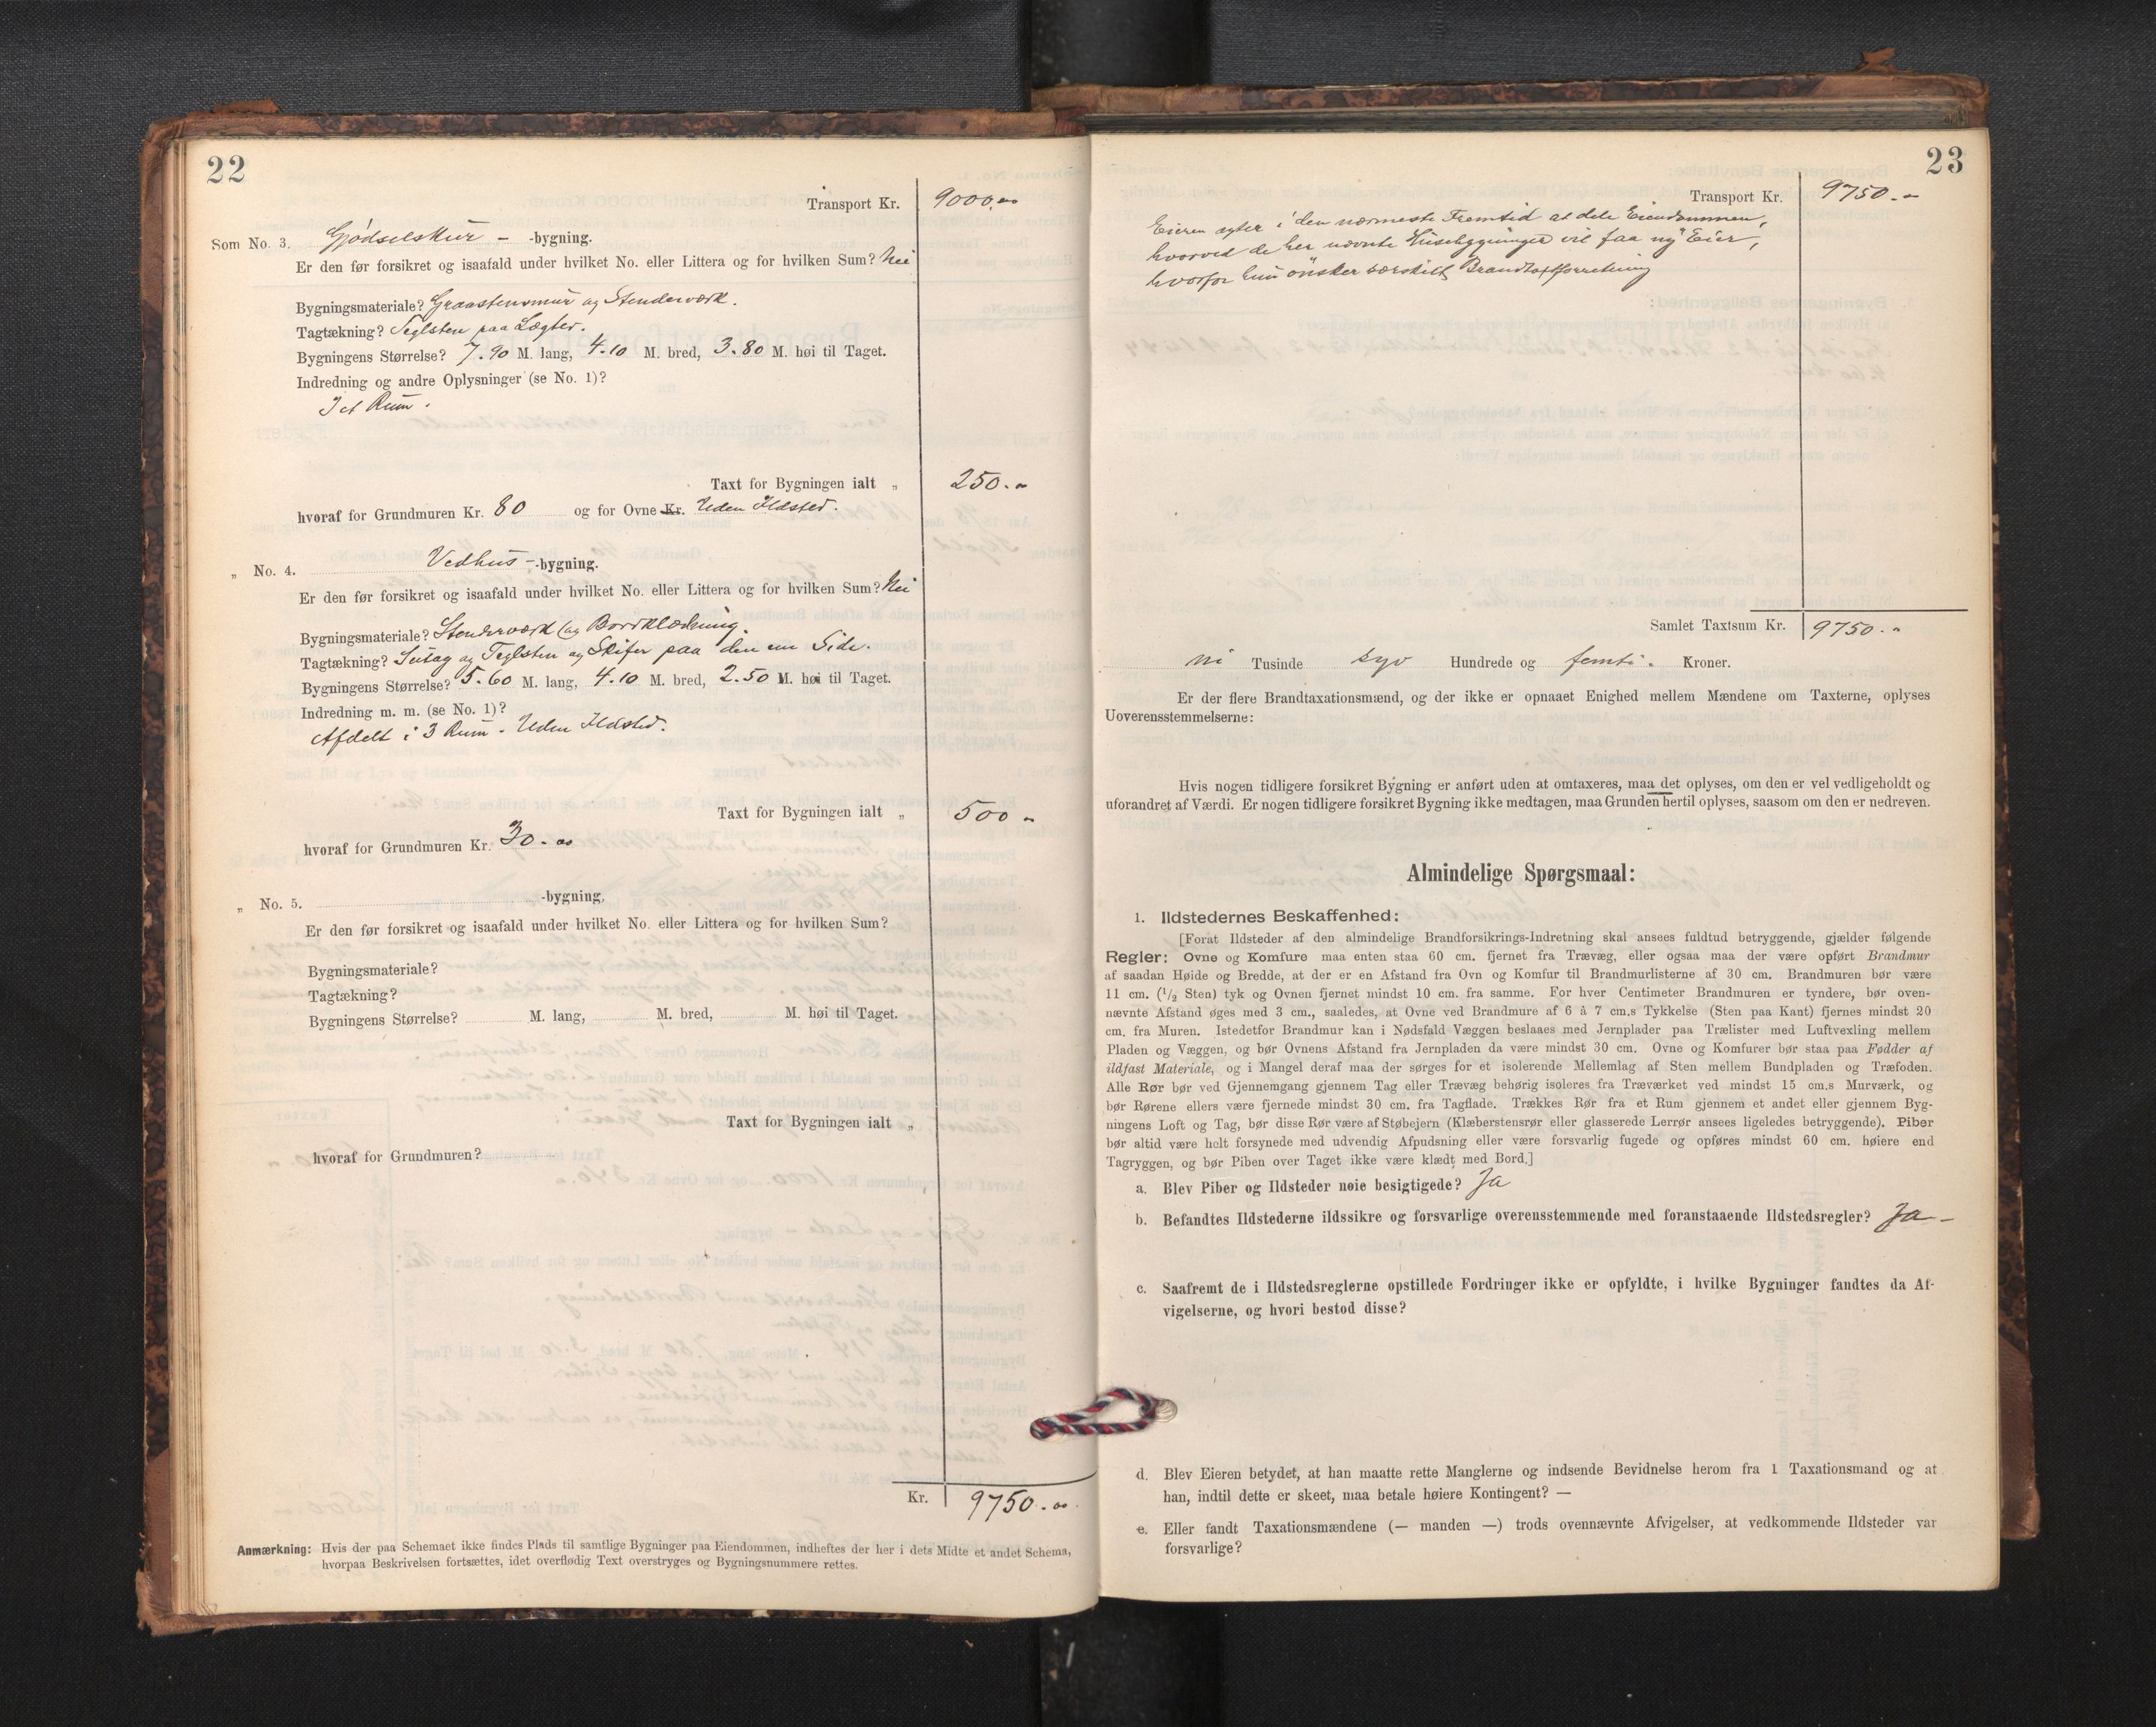 22
Transport Kr. 9000.00
Som No. 3. Gjødselskur - -bygning.
Er den før forsikret og isaafald under hvilket No. eller Littera og for hvilken Sum? Nei
Bygningsmateriale? Graastensmur og Stenderværk.
Tagtækning? Teglsten paa Lægter.
Bygningens Størrelse? 7.90 M. lang, 4.10 M. bred, 3.80 M. høi til Taget.
Indredning og andre Oplysninger (se No. 1)?
I et Rum.
Taxt for Bygningen ialt „ 250.-
hvoraf for Grundmuren Kr. 80 og for Ovne Kr. Uden Ildsted.
„ No. 4. Vedhus - -bygning.
Er den før forsikret og isaafald under hvilket No. eller Littera og for hvilken Sum? Nei
Bygningsmateriale? Stenderværk og Bordklædning.
Tagtækning? Sutag og Teglsten og Skifer paa den ene Side.
Bygningens Størrelse? 5.60 M. lang, 4.10 M. bred, 2.50 M. høi til Taget.
Indredning m. m. (se No. 1)?
Afdelt i 3 Rum. Uden Ildsted.
Taxt for Bygningen ialt „ 500 -
hvoraf for Grundmuren Kr. 30.00
„ No. 5. -bygning,
Er den før forsikret og isaafald under hvilket No. eller Littera og for hvilken Sum?
Bygningsmateriale?
Tagtækning?
Bygningens Størrelse? M. lang, M. bred, M. høi til Taget.
Taxt for Bygningen ialt „
hvoraf for Grundmuren?
Kr. 9750.00
Anmærkning: Hvis der paa Schemaet ikke findes Plads til samtlige Bygninger paa Eiendommen, indheftes der her i dets Midte et andet Schema,
hvorpaa Beskrivelsen fortsættes, idet overflødig Text overstryges og Bygningsnummere rettes.
23
Transport Kr. 9750.-
Eieren agter i den nærmeste Fremtid at dele Eiendommen,
hvorved de her nævnte Husebygninger vil faa ny Eier,
hvorfor hun ønsker særskilt Brandtaxtforretning
Samlet Taxtsum Kr. 9750.-
ni Tusinde syv Hundrede og femti. Kroner.
Er der flere Brandtaxationsmænd, og der ikke er opnaaet Enighed mellem Mændene om Taxterne, oplyses
Uoverensstemmelserne:
Hvis nogen tidligere forsikret Bygning er anført uden at omtaxeres, maa det oplyses, om den er vel vedligeholdt og
uforandret af Værdi. Er nogen tidligere forsikret Bygning ikke medtagen, maa Grunden hertil oplyses, saasom om den er nedreven.
Almindelige Spørgsmaal:
1. Ildstedernes Beskaffenhed:
[Forat Ildsteder af den almindelige Brandforsikrings-Indretning skal ansees fuldtud betryggende, gjælder følgende
Regler: Ovne og Komfure maa enten staa 60 cm. fjernet fra Trævæg, eller ogsaa maa der være opført Brandmur
af saadan Høide og Bredde, at der er en Afstand fra Ovn og Komfur til Brandmurlisterne af 30 cm. Brandmuren bør være
11 cm. (1/2 Sten) tyk og Ovnen fjernet mindst 10 cm. fra samme. For hver Centimeter Brandmuren er tyndere, bør oven-
nævnte Afstand øges med 3 cm., saaledes, at Ovne ved Brandmure af 6 à 7 cm.s Tykkelse (Sten paa Kant) fjernes mindst 20
cm. fra Muren. Istedetfor Brandmur kan i Nødsfald Væggen beslaaes med Jernplader paa Trælister med Luftvexling mellem
Pladen og Væggen, og bør Ovnens Afstand fra Jernpladen da være mindst 30 cm. Ovne og Komfurer bør staa paa Fødder af
ildfast Materiale, og i Mangel deraf maa der sørges for et isolerende Mellemlag af Sten mellem Bundpladen og Træfoden.
Alle Rør bør ved Gjennemgang gjennem Tag eller Trævæg behørig isoleres fra Træværket ved mindst 15 cm.s Murværk, og
bør Rørene ellers være fjernede mindst 30 cm. fra Tagflade. Trækkes Rør fra et Rum gjennem et andet eller gjennem Byg-
ningens Loft og Tag, bør disse Rør være af Støbejern (Klæberstensrør eller glasserede Lerrør ansees ligeledes betryggende). Piber
bør altid være helt forsynede med udvendig Afpudsning eller være forsvarlig fugede og opføres mindst 60 cm. høiere end
Tagryggen, og bør Piben over Taget ikke være klædt med Bord.]
a. Blev Piber og Ildsteder nøie besigtigede? Ja
b. Befandtes Ildstederne ildssikre og forsvarlige overensstemmende med foranstaaende Ildstedsregler? Ja -
c. Saafremt de i Ildstedsreglerne opstillede Fordringer ikke er opfyldte, i hvilke Bygninger fandtes da Af-
vigelserne, og hvori bestod disse?
d. Blev Eieren betydet, at han maatte rette Manglerne og indsende Bevidnelse herom fra 1 Taxationsmand og at
han, indtil dette er skeet, maa betale høiere Kontingent? —
e. Eller fandt Taxationsmændene (— manden —) trods ovennævnte Afvigelser, at vedkommende Ildsteder var
forsvarlige?